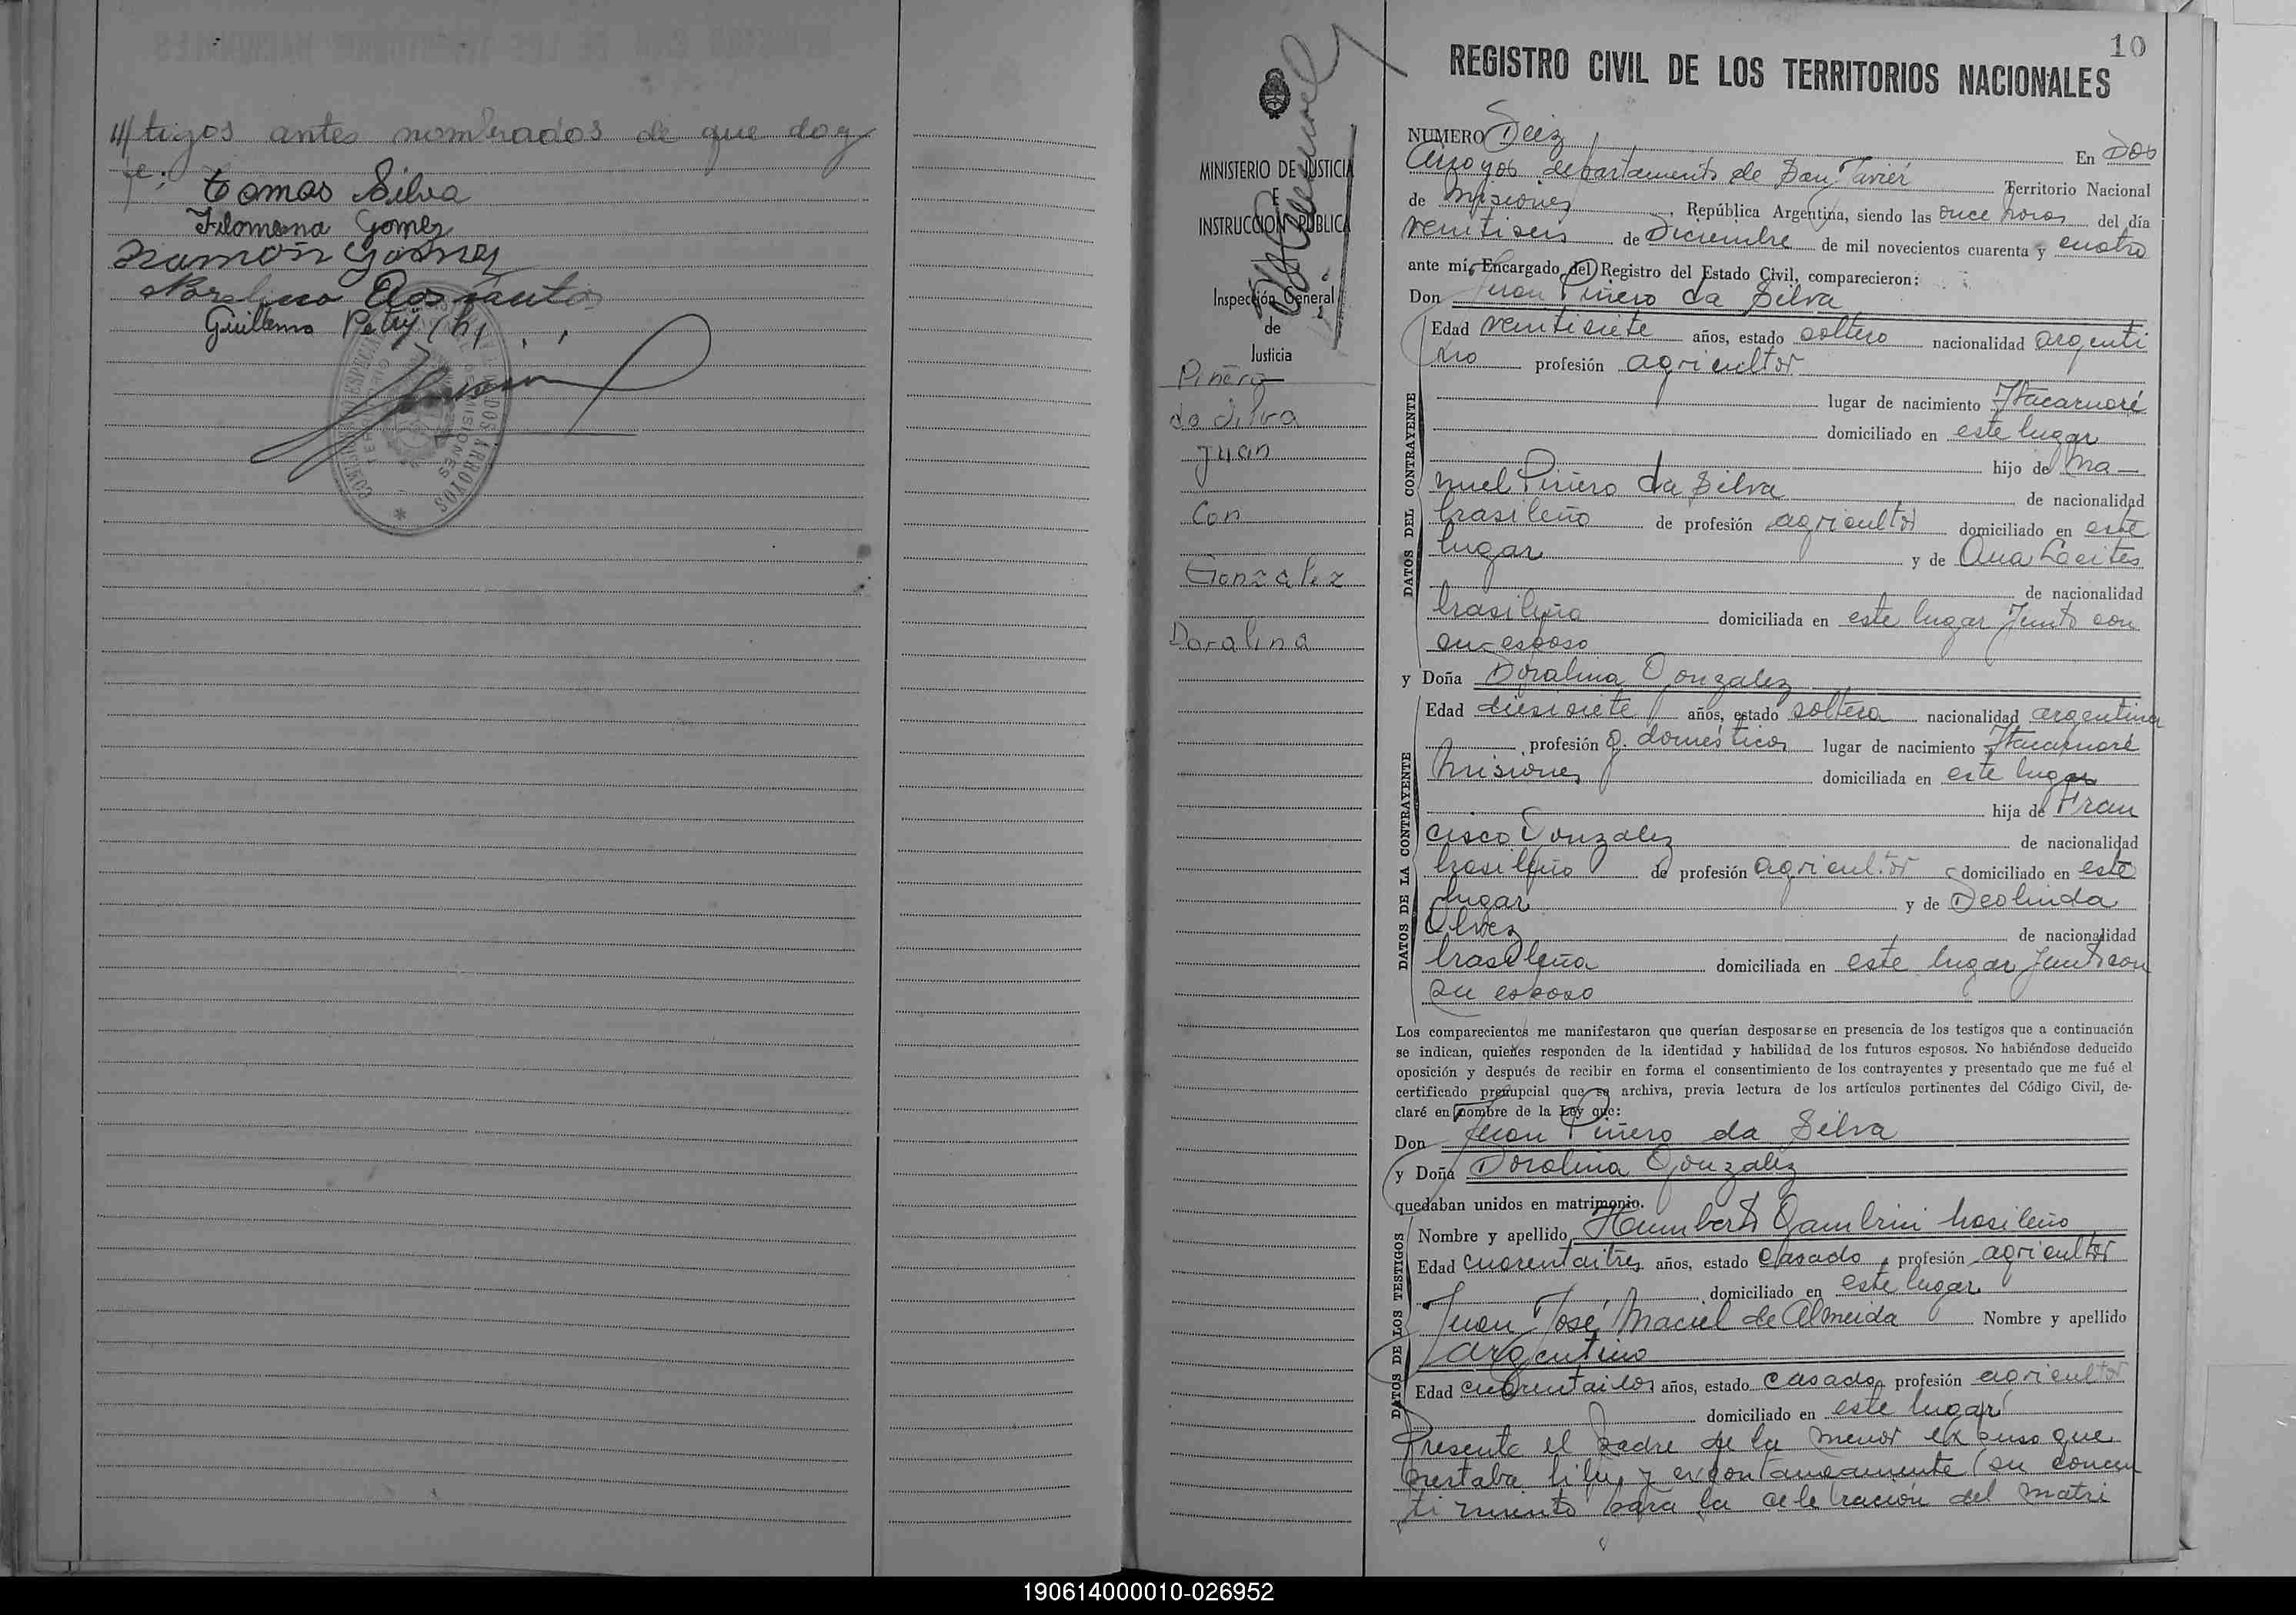 ///tigos antes nombrados de que doy
fe:
Tomas Silva
Filomena Gomez
Ramón Gomez
dos santos
Guillermo Petry (h)
DOS ARROYOS
MISIONES
10
REGISTRO CIVIL DE LOS TERRITORIOS NACIONALES
MINISTERIO DE JUSTICIA
E
INSTRUCCION PUBLICA
Inspección General
de
Justicia
Piñero
da Silva
Juan
Con
Gonzalez
Doralina
NUMERO Diez En Dos
Arroyos departamento de San Javier Territorio Nacional
de Misiones, República Argentina, siendo las once horas del día
ventiseis de Diciembre de mil novecientos cuarenta y cuatro
ante mí, Encargado del Registro del Estado Civil, comparecieron:
Don Juan Piñero da Silva
DATOS DEL CONTRAYENTE
Edad ventisiete años, estado soltero nacionalidad argenti
no profesión agricultor
lugar de nacimiento Itacaruaré
domiciliado en este lugar
hijo de Ma-
nuel Piñero da Silva de nacionalidad
brasileño de profesión agricultor domiciliado en este
lugar y de Ana
de nacionalidad
brasileña domiciliada en este lugar junto con
su esposo
y Doña Doralina Gonzalez
DATOS DE LA CONTRAYENTE
Edad diesisiete años, estado soltera nacionalidad argentina
profesión q. domésticos lugar de nacimiento Itacaruaré
Misiones domiciliada en este lugar
hija de Fran
cisco Gonzalez de nacionalidad
brasileño de profesión agricultor domiciliado en este
lugar y de Deolinda
Olvez de nacionalidad
brasileña domiciliada en este lugar junto con
su esposo
Los comparecientes me manifestaron que querían desposarse en presencia de los testigos que a continuación
se indican, quienes responden de la identidad y habilidad de los futuros esposos. No habiéndose deducido
oposición y después de recibir en forma el consentimiento de los contrayentes y presentado que me fué el
certificado prenupcial que se archiva, previa lectura de los artículos pertinentes del Código Civil, de-
claré en nombre de la Ley que:
Don Juan Piñero da Silva
y Doña Doralina Gonzalez
quedaban unidos en matrimonio.
DATOS DE LOS TESTIGOS
Nombre y apellido Humberto Gambrini brasileño
Edad cuarentaitres años, estado casado, profesión agricultor
domiciliado en este lugar
Juan José Maciel de Almeida Nombre y apellido
argentino
Edad cuarentaidos años, estado casado profesión agricultor
domiciliado en este lugar
Presente el padre de la menor expuso que
prestaba libre y expontaneamente su concen
timiento para la celebración del matri
190614000010-026952